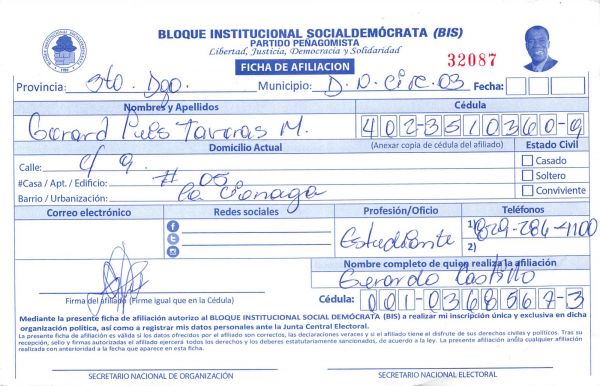 BLOQUE INSTITUCIONAL SOCIALDEMÓCRATA (BIS)
PARTIDO PEÑAGOMISTA
Libertad, Justicia, Democracia y Solidaridad
FICHA DE AFILIACION
32087
Provincia: Sto. Dgo. Municipio: D.N. Circ. 03 Fecha:
Nombres y Apellidos Cédula
Gerard Taveras M. 402-3510360-9
Domicilio Actual (Anexar copia de cédula del afiliado) Estado Civil
Calle: C/ 9 Casado
#Casa / Apt. / Edificio: # 05 Soltero
Barrio / Urbanización: La Cienaga Conviviente
Correo electrónico Redes sociales Profesión/Oficio Teléfonos
Estudiante 1) 829-286-1100
2)
Nombre completo de quien realiza la afiliación
Gerardo Castillo
Firma del afiliado (Firme igual que en la Cédula) Cédula: 001-0368567-3
Mediante la presente ficha de afiliación autorizo al BLOQUE INSTITUCIONAL SOCIAL DEMÓCRATA (BIS) a realizar mi inscripción única y exclusiva en dicha
organización politica, así como a registrar mis datos personales ante la Junta Central Electoral.
La presente ficha de afiliación es válida si los datos ofrecidos por el afiliado son correctos, las declaraciones veraces y si el afiliado tiene el disfrute de sus derechos civiles y políticos. Tras su
recepción, sello y firmas autorizadas el afiliado ejercerá todos los derechos y los deberes estatutariamente sancionados, de acuerdo a la ley. La presente afiliación anula cualquier afiliación
realizada con anterioridad a la fecha que aparece en esta ficha.
SECRETARIO NACIONAL DE ORGANIZACIÓN SECRETARIO NACIONAL ELECTORAL